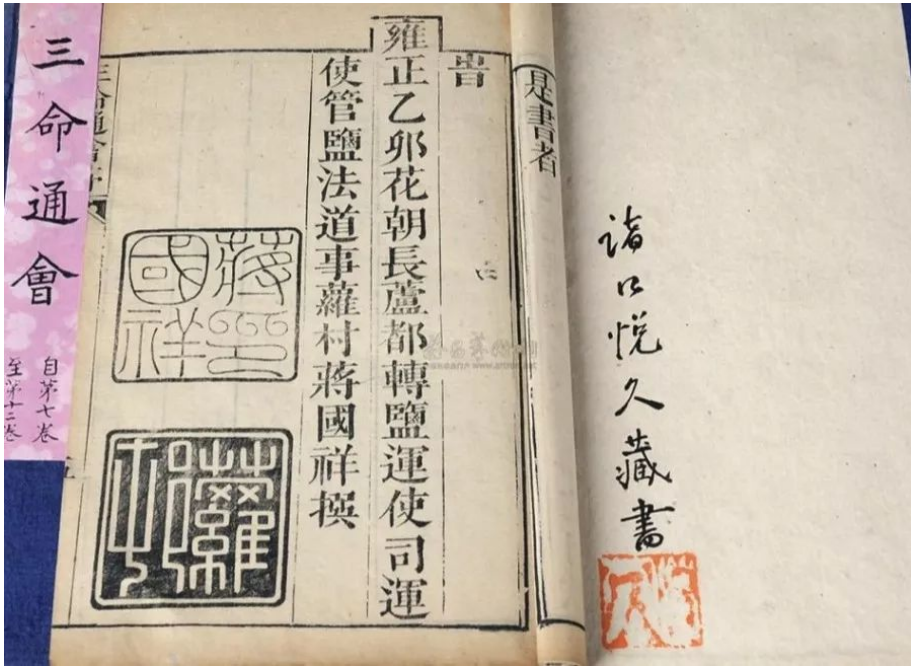 諸口悦久藏書
悦久
是書者
旹
雍正乙卯花朝長蘆都轉鹽運使司運
使管鹽法道事蘿村蔣國祥撰
蔣印
國祥
蘿村
三命通會序
三命通會
自第七卷
至第十二卷